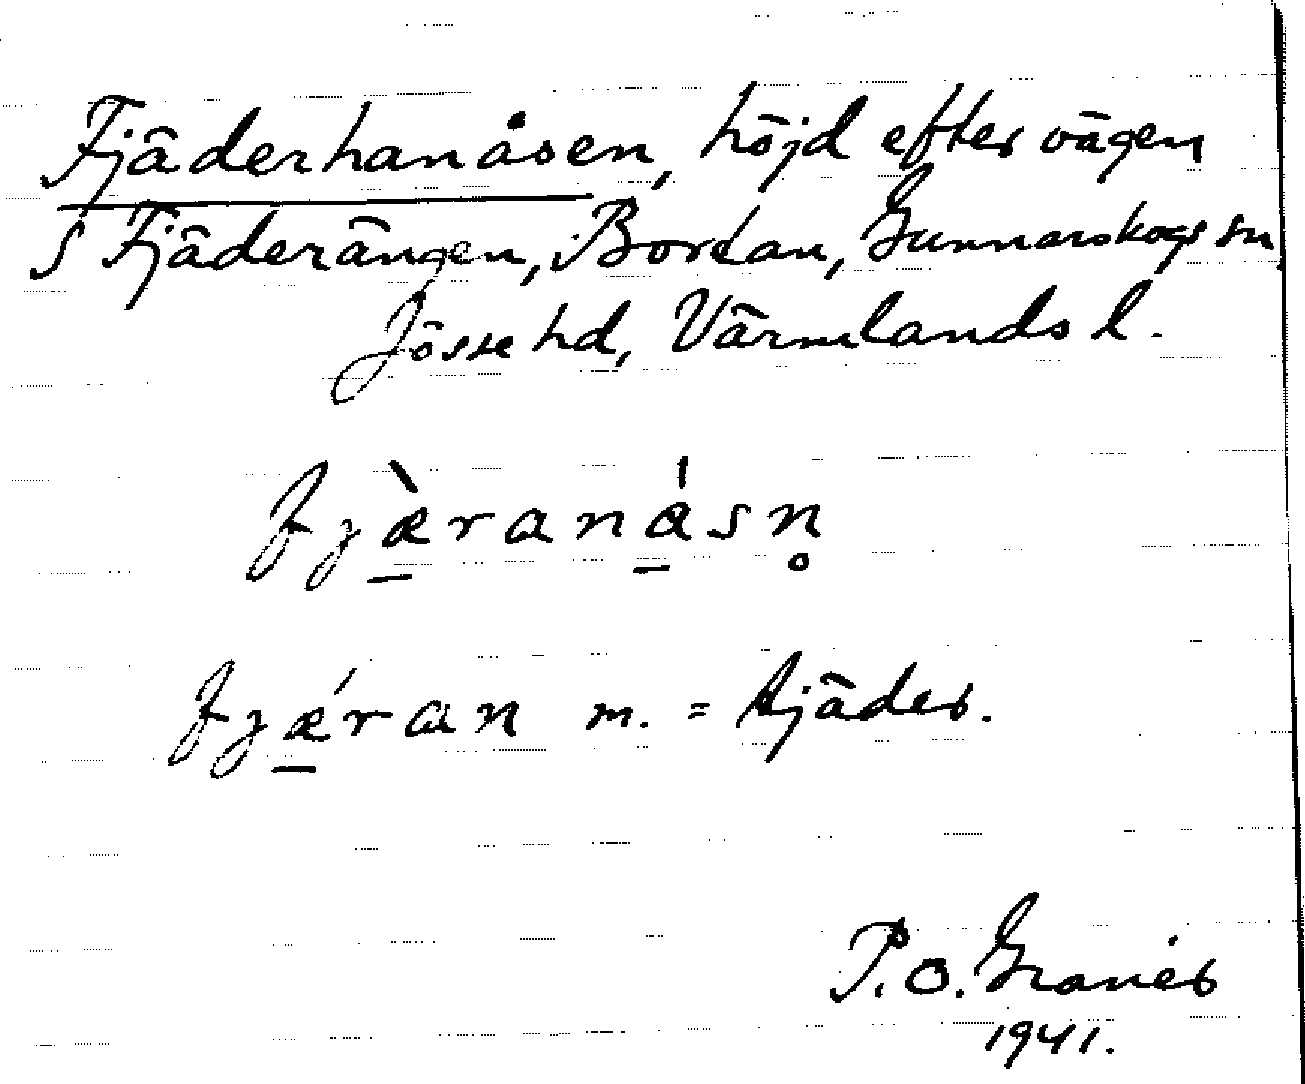 Fjäderhanåsen, höjd efter vägen
S Fjäderängen, Bortan, Gunnarskogs sn
Jösse hd, Värmlands l.
fjæ̠̀raná̠sn̥
fjǽ̠ran m. = tjäder.
P. O. Granér
1941.